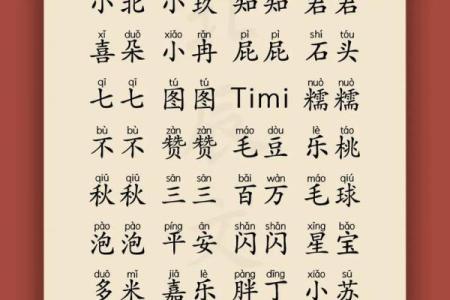 小北 小玖 知知 君君
xǐ duǒ xiǎo rǎn pì pì shí tóu
喜朵 小冉 屁屁 石头
qī qī tú tú nuò nuò
七七 图图 Timi 糯糯
bù bù zàn zàn máo dòu lè táo
不不 赞赞 毛豆 乐桃
qiū qiū sān sān bǎi wàn máo qiú
秋秋 三三 百万 毛球
pào pào píng ān shǎn shǎn xīng bǎo
泡泡 平安 闪闪 星宝
duō mǐ jiā lè pàng dīng xiǎo sū
多米 嘉乐 胖丁 小苏